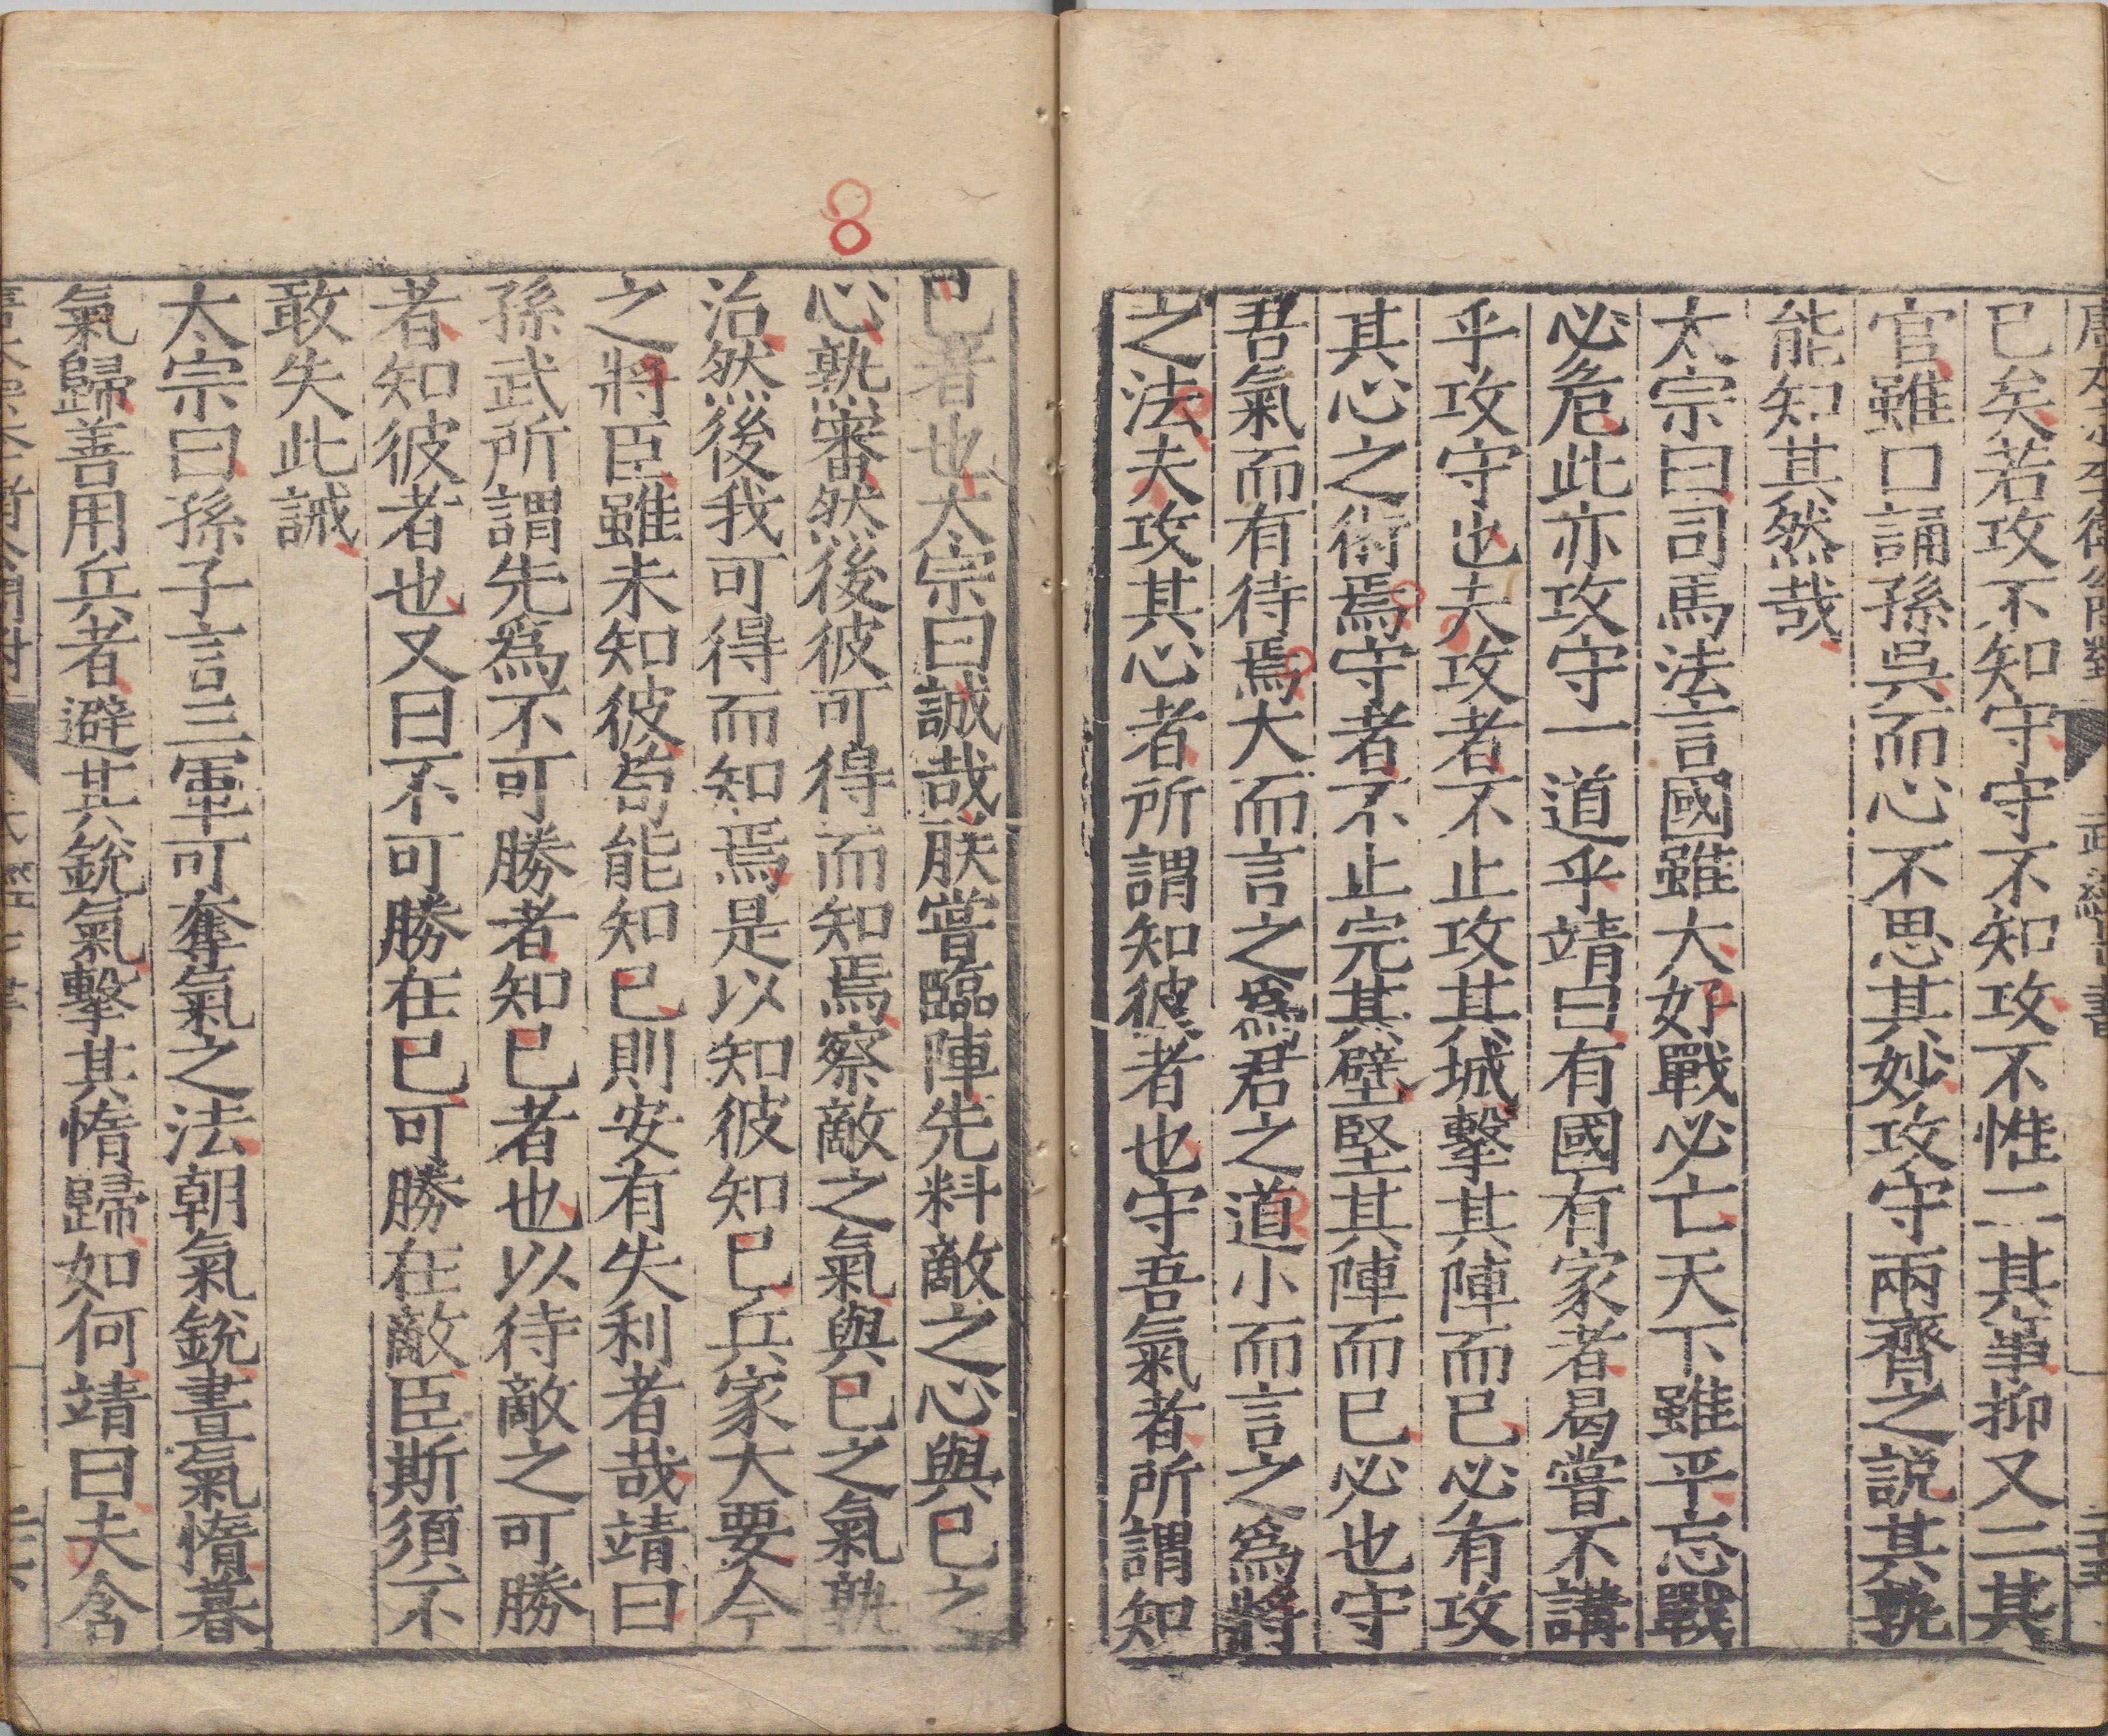 唐太宗李衛公問對 武經七書 二十五
已矣若攻不知守守不知攻不惟二其事抑又二其
官雖口誦孫吳而心不思其妙攻守兩齊之說其孰
能知其然哉
太宗曰司馬法言國雖大好戰必亡天下雖平忘戰
必危此亦攻守一道乎靖曰有國有家者曷嘗不講
乎攻守也夫攻者不止攻其城擊其陣而已必有攻
其心之術焉守者不止完其壁堅其陣而已必也守
吾氣而有待焉大而言之爲君之道小而言之爲將
之法夫攻其心者所謂知彼者也守吾氣者所謂知
已者也太宗曰誠哉朕嘗臨陣先料敵之心與已之
心孰審然後彼可得而知焉察敵之氣與已之氣孰
治然後我可得而知焉是以知彼知已兵家大要今
之將臣雖未知彼苟能知已則安有失利者哉靖曰
孫武所謂先爲不可勝者知已者也以待敵之可勝
者知彼者也又曰不可勝在已可勝在敵臣斯須不
敢失此誡
太宗曰孫子言三軍可奪氣之法朝氣銳晝氣惰暮
氣歸善用兵者避其銳氣擊其惰歸如何靖曰夫含